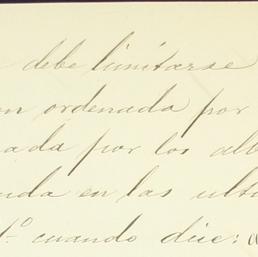 debe limitarse
on ordenada por
ada por los alb
uda en las ulti
1º cuando dice: